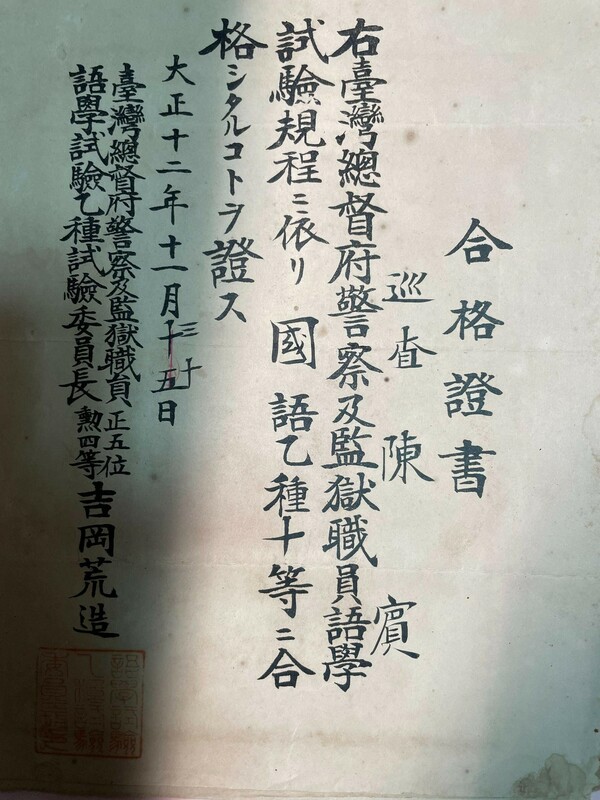 合格證書
巡査 陳 賓
右臺灣總督府警察及監獄職員語學
試驗規程ニ依リ國語乙種十等ニ合
格シタルコトヲ證ス
大正十二年十一月三十日
臺灣總督府警察及監獄職員
語學試驗乙種試驗委員長
正五位
勲四等
吉岡荒造